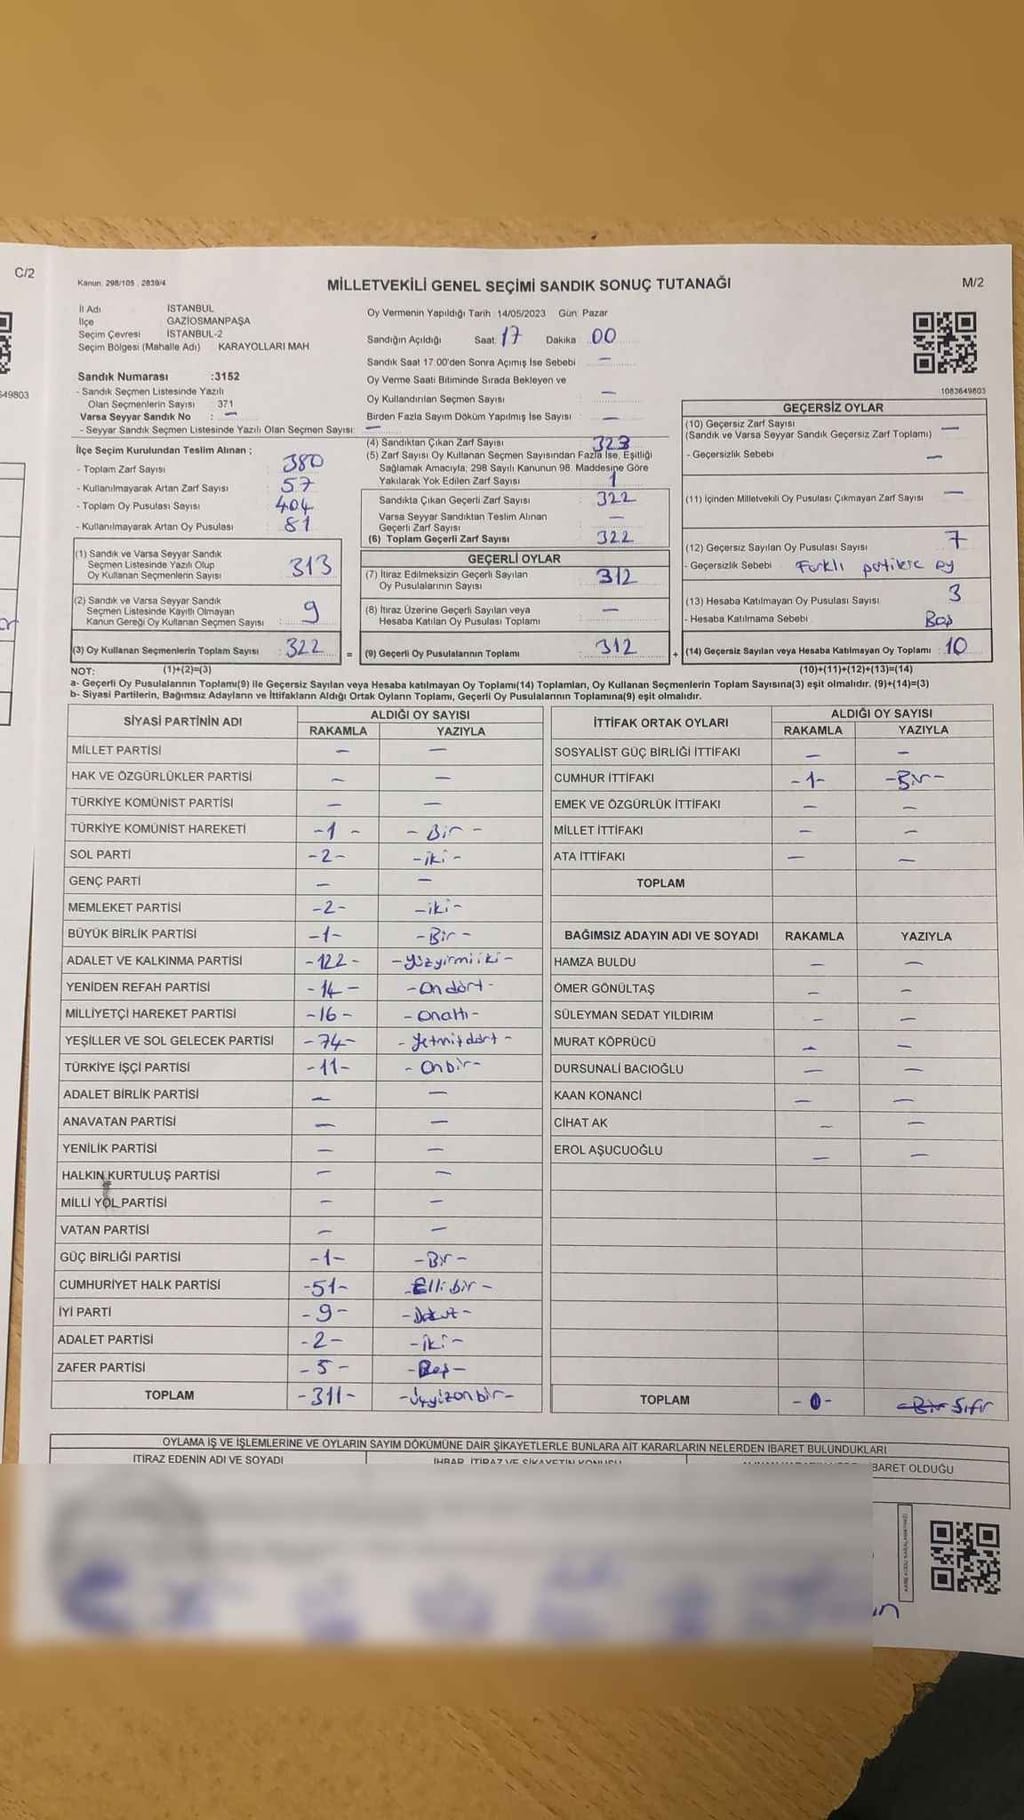 C/2
Kanun: 298/105 , 2839/4
MİLLETVEKİLİ GENEL SEÇİMİ SANDIK SONUÇ TUTANAĞI
M/2
İl Adı İSTANBUL
İlçe GAZİOSMANPAŞA
Seçim Çevresi İSTANBUL-2
Seçim Bölgesi (Mahalle Adı) KARAYOLLARI MAH
Sandık Numarası :3152
- Sandık Seçmen Listesinde Yazılı
Olan Seçmenlerin Sayısı 371
Varsa Seyyar Sandık No : —
- Seyyar Sandık Seçmen Listesinde Yazılı Olan Seçmen Sayısı: —
Oy Vermenin Yapıldığı Tarih 14/05/2023 Gün: Pazar
Sandığın Açıldığı Saat: 17 Dakika 00
Sandık Saat 17:00'den Sonra Açımış İse Sebebi —
Oy Verme Saati Bitiminde Sırada Bekleyen ve
Oy Kullandırılan Seçmen Sayısı —
Birden Fazla Sayım Döküm Yapılmış İse Sayısı —
549803
1083649803
İlçe Seçim Kurulundan Teslim Alınan ;
- Toplam Zarf Sayısı 380
- Kullanılmayarak Artan Zarf Sayısı 57
- Toplam Oy Pusulası Sayısı 404
- Kullanılmayarak Artan Oy Pusulası 81
(1) Sandık ve Varsa Seyyar Sandık
Seçmen Listesinde Yazılı Olup
Oy Kullanan Seçmenlerin Sayısı 313
(2) Sandık ve Varsa Seyyar Sandık
Seçmen Listesinde Kayıtlı Olmayan
Kanun Gereği Oy Kullanan Seçmen Sayısı 9
(3) Oy Kullanan Seçmenlerin Toplam Sayısı 322 =
(4) Sandıktan Çıkan Zarf Sayısı 323
(5) Zarf Sayısı Oy Kullanan Seçmen Sayısından Fazla İse, Eşitliği
Sağlamak Amacıyla; 298 Sayılı Kanunun 98. Maddesine Göre
Yakılarak Yok Edilen Zarf Sayısı 1
Sandıkta Çıkan Geçerli Zarf Sayısı 322
Varsa Seyyar Sandıktan Teslim Alınan
Geçerli Zarf Sayısı —
(6) Toplam Geçerli Zarf Sayısı 322
GEÇERLİ OYLAR
(7) İtiraz Edilmeksizin Geçerli Sayılan
Oy Pusulalarının Sayısı 312
(8) İtiraz Üzerine Geçerli Sayılan veya
Hesaba Katılan Oy Pusulası Toplamı —
(9) Geçerli Oy Pusulalarının Toplamı 312 +
GEÇERSİZ OYLAR
(10) Geçersiz Zarf Sayısı —
(Sandık ve Varsa Seyyar Sandık Geçersiz Zarf Toplamı)
- Geçersizlik Sebebi —
(11) İçinden Milletvekili Oy Pusulası Çıkmayan Zarf Sayısı —
(12) Geçersiz Sayılan Oy Pusulası Sayısı 7
- Geçersizlik Sebebi Farklı
(13) Hesaba Katılmayan Oy Pusulası Sayısı 3
- Hesaba Katılmama Sebebi Boş
(14) Geçersiz Sayılan veya Hesaba Katılmayan Oy Toplamı : 10
NOT: (1)+(2)=(3) (10)+(11)+(12)+(13)=(14)
a- Geçerli Oy Pusulalarının Toplamı(9) ile Geçersiz Sayılan veya Hesaba katılmayan Oy Toplamı(14) Toplamları, Oy Kullanan Seçmenlerin Toplam Sayısına(3) eşit olmalıdır. (9)+(14)=(3)
b- Siyasi Partilerin, Bağımsız Adayların ve İttifakların Aldığı Ortak Oyların Toplamı, Geçerli Oy Pusulalarının Toplamına(9) eşit olmalıdır.
SİYASİ PARTİNİN ADI ALDIĞI OY SAYISI
RAKAMLA YAZIYLA
MİLLET PARTİSİ — —
HAK VE ÖZGÜRLÜKLER PARTİSİ — —
TÜRKİYE KOMÜNİST PARTİSİ — —
TÜRKİYE KOMÜNİST HAREKETİ -1- - Bir -
SOL PARTİ -2- -iki-
GENÇ PARTİ — —
MEMLEKET PARTİSİ -2- -iki-
BÜYÜK BİRLİK PARTİSİ -1- -Bir-
ADALET VE KALKINMA PARTİSİ -122- -yüzyirmiiki-
YENİDEN REFAH PARTİSİ -14- -Ondört-
MİLLİYETÇİ HAREKET PARTİSİ -16- -onaltı-
YEŞİLLER VE SOL GELECEK PARTİSİ -74- -yetmişdört-
TÜRKİYE İŞÇİ PARTİSİ -11- -Onbir-
ADALET BİRLİK PARTİSİ — —
ANAVATAN PARTİSİ — —
YENİLİK PARTİSİ — —
HALKIN KURTULUŞ PARTİSİ — —
MİLLİ YOL PARTİSİ — —
VATAN PARTİSİ — —
GÜÇ BİRLİĞİ PARTİSİ -1- -Bir-
CUMHURİYET HALK PARTİSİ -51- -Ellibir-
İYİ PARTİ -9- -Dokuz-
ADALET PARTİSİ -2- -iki-
ZAFER PARTİSİ -5- -Beş-
TOPLAM -311- -Üçyüzonbir-
İTTİFAK ORTAK OYLARI ALDIĞI OY SAYISI
RAKAMLA YAZIYLA
SOSYALİST GÜÇ BİRLİĞİ İTTİFAKI — —
CUMHUR İTTİFAKI -1- -Bir-
EMEK VE ÖZGÜRLÜK İTTİFAKI — —
MİLLET İTTİFAKI — —
ATA İTTİFAKI — —
TOPLAM
BAĞIMSIZ ADAYIN ADI VE SOYADI RAKAMLA YAZIYLA
HAMZA BULDU — —
ÖMER GÖNÜLTAŞ — —
SÜLEYMAN SEDAT YILDIRIM — —
MURAT KÖPRÜCÜ — —
DURSUNALİ BACIOĞLU — —
KAAN KONANCİ — —
CİHAT AK — —
EROL AŞUCUOĞLU — —
TOPLAM -0- -Bir Sıfır
OYLAMA İŞ VE İŞLEMLERİNE VE OYLARIN SAYIM DÖKÜMÜNE DAİR ŞİKAYETLERLE BUNLARA AİT KARARLARIN NELERDEN İBARET BULUNDUKLARI
İTİRAZ EDENİN ADI VE SOYADI
BARET OLDUĞU